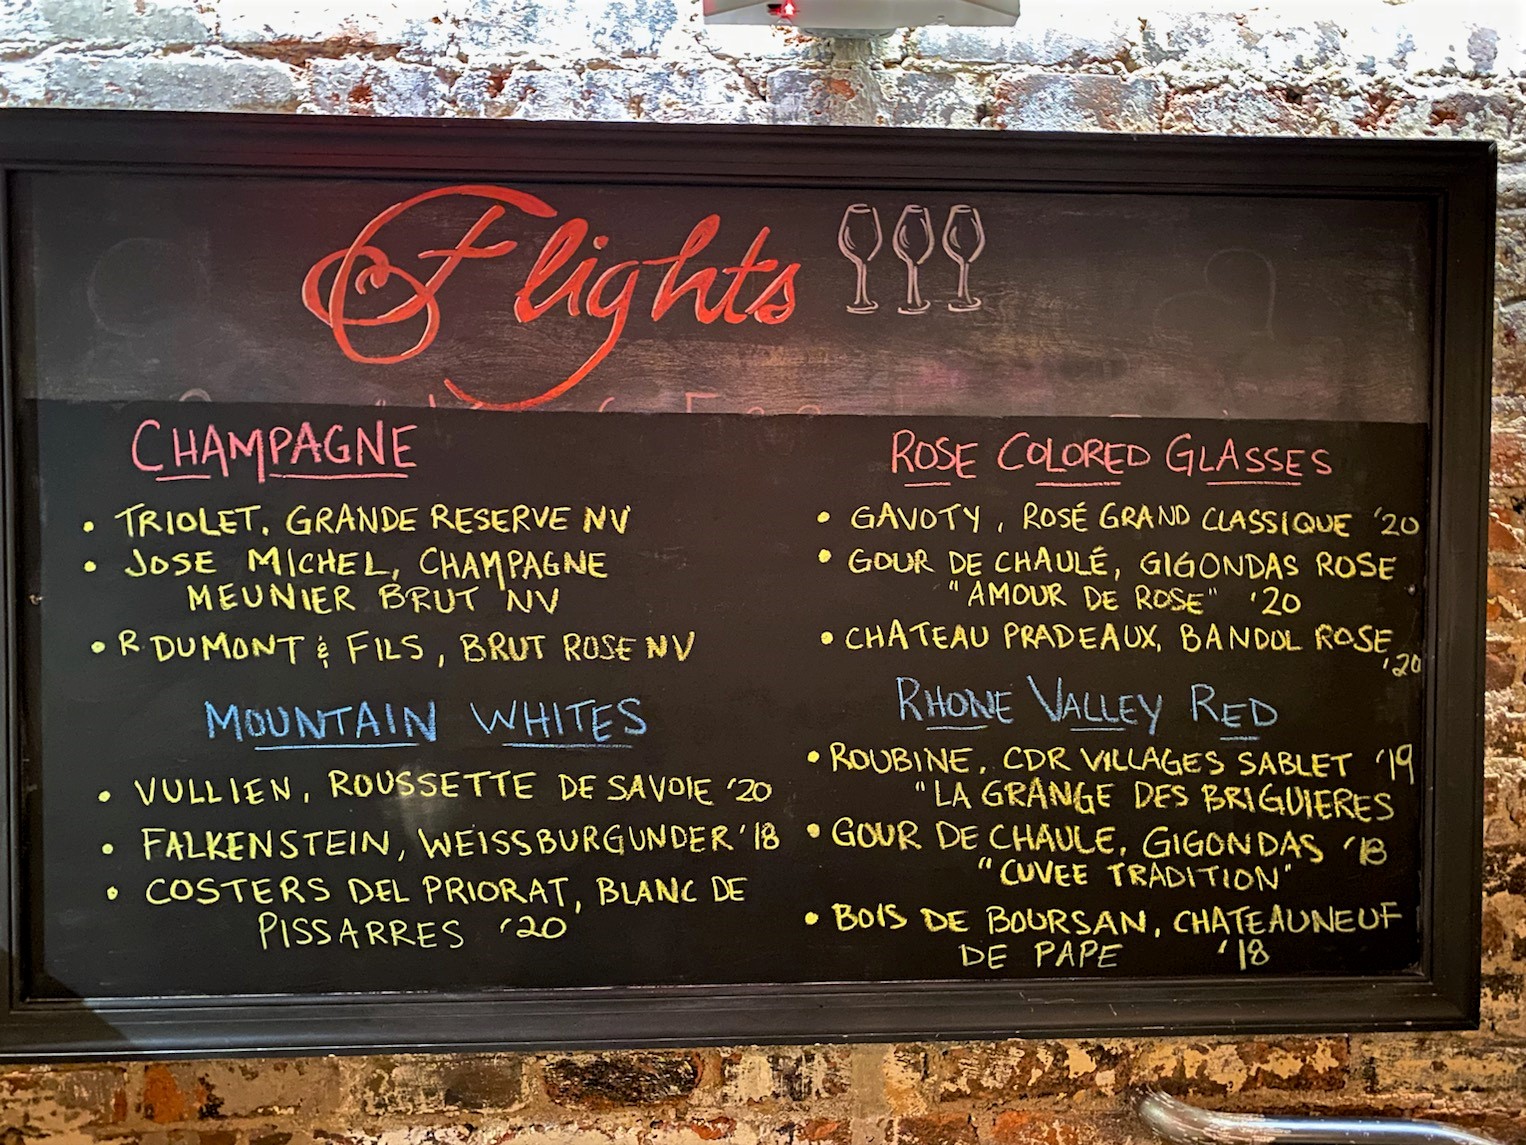 Flights
CHAMPAGNE
• TRIOLET, GRANDE RESERVE NV
• JOSE MICHEL, CHAMPAGNE
MEUNIER BRUT NV
• R DUMONT & FILS, BRUT ROSE NV
MOUNTAIN WHITES
• VULLIEN, ROUSSETTE DE SAVOIE '20
• FALKENSTEIN, WEISSBURGUNDER '18
• COSTERS DEL PRIORAT, BLANC DE
PISSARRES '20
ROSE COLORED GLASSES
• GAVOTY, ROSÉ GRAND CLASSIQUE '20
• GOUR DE CHAULÉ, GIGONDAS ROSE
"AMOUR DE ROSE" '20
• CHATEAU PRADEAUX, BANDOL ROSE
'20
RHONE VALLEY RED
• ROUBINE, CDR VILLAGES SABLET '19
"LA GRANGE DES BRIGUIERES
• GOUR DE CHAULE, GIGONDAS '18
"CUVEE TRADITION"
• BOIS DE BOURSAN, CHATEAUNEUF
DE PAPE '18